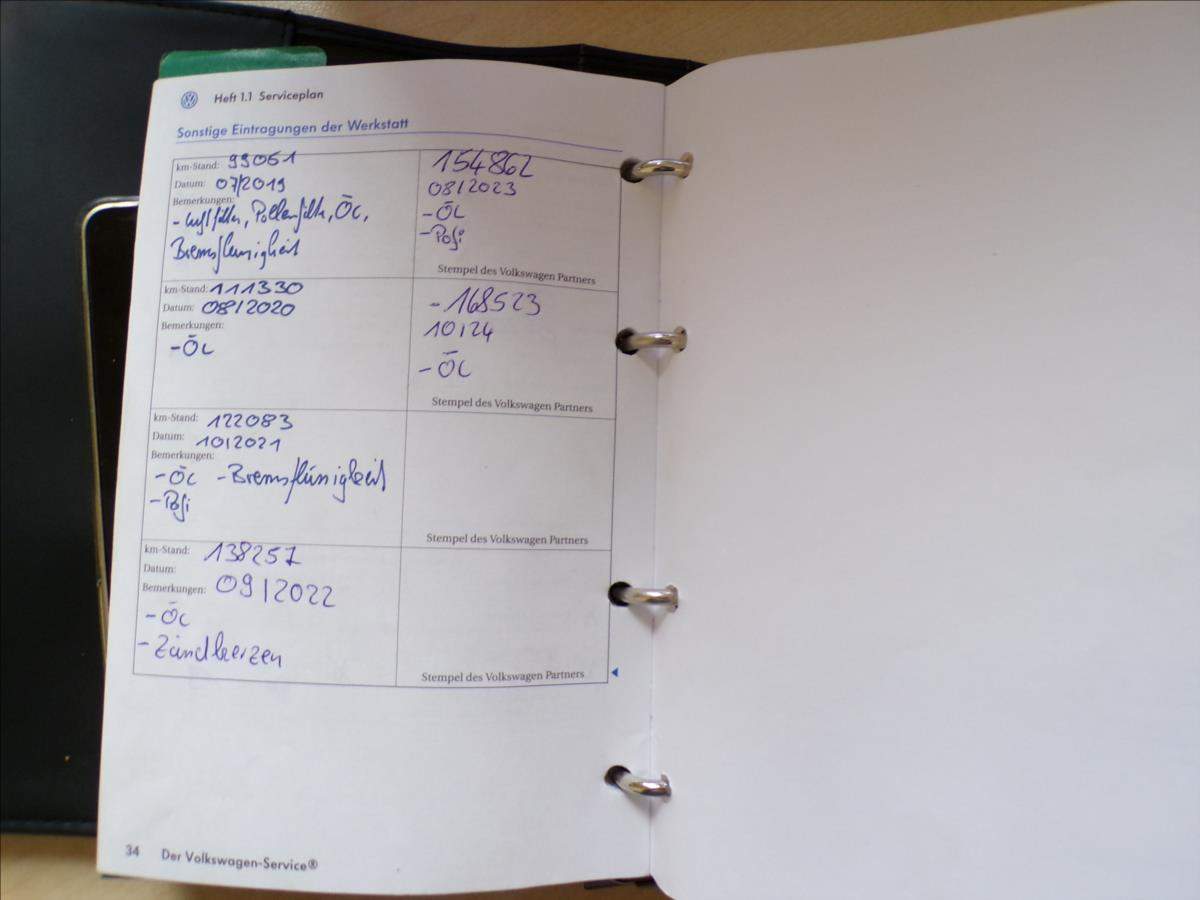 Heft 1.1 Serviceplan
Sonstige Eintragungen der Werkstatt
km-Stand: 99061
Datum: 07/2019
Bemerkungen:
- Luftfilter, Pollenfilter, ÖL,
Bremsflüssigkeit
154862
08/2023
- ÖL
- Pofi
Stempel des Volkswagen Partners
km-Stand: 111330
Datum: 08/2020
Bemerkungen:
- ÖL
- 168523
10/24
- ÖL
Stempel des Volkswagen Partners
km-Stand: 122083
Datum: 10/2021
Bemerkungen:
- ÖL - Bremsflüssigkeit
- Pofi
Stempel des Volkswagen Partners
km-Stand: 138257
Datum:
Bemerkungen: 09/2022
- ÖL
- Zündkerzen
Stempel des Volkswagen Partners
34 Der Volkswagen-Service®